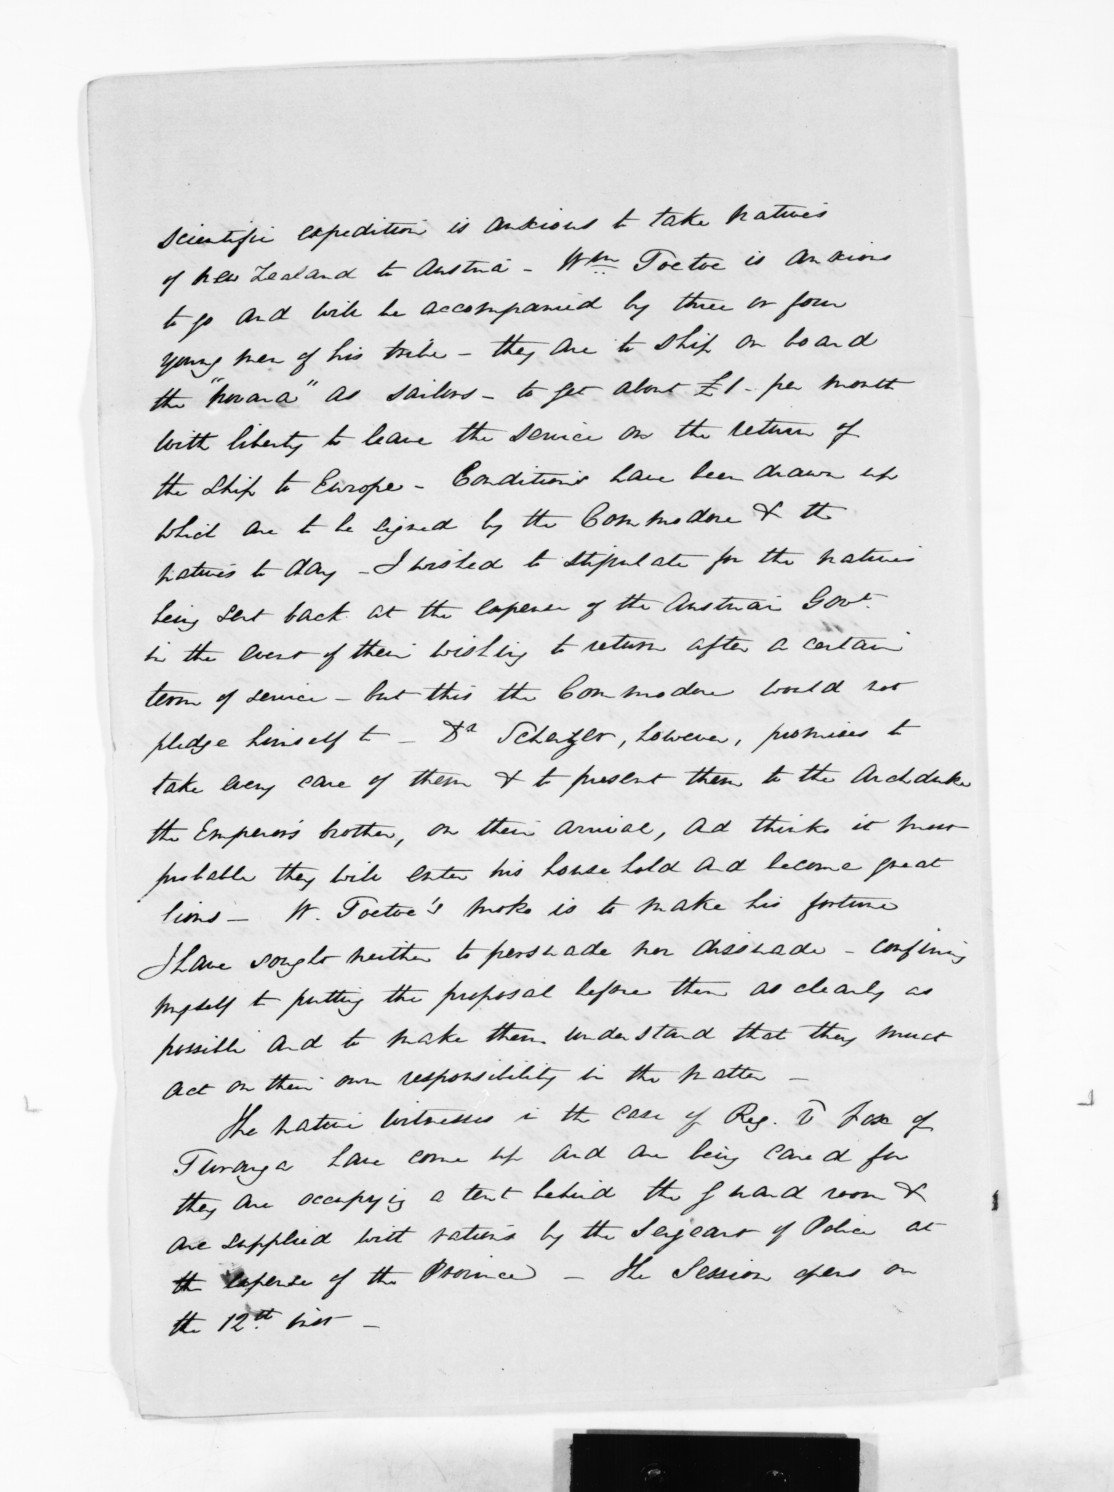 scientific expedition is anxious to take natives
of New Zealand to Austria - Wm Toetoe is anxious
to go and will be accompanied by three or four
young men of his tribe - they are to ship on board
the "Novara" as sailors - to get about £1 - per month
with liberty to leave the service on the return of
the ship to Europe - Conditions have been drawn up
which are to be signed by the Commodore & the
natives to day - I wished to stipulate for the natives
being sent back at the expense of the Austrian Govt.
in the event of their wishing to return after a certain
term of service - but this the Commodore would not
pledge himself to - Dr Scherzer, however, promises to
take every care of them & to present them to the Archduke
the Emperor's brother, on their arrival, and thinks it most
probable they will enter his household and become great
lions - W. Toetoe's moko is to make his fortune
I have sought neither to persuade nor dissuade - confining
myself to putting the proposal before them as clearly as
possible and to make them understand that they must
act on their own responsibility in the matter -
The native witnesses in the case of Reg. v Fox of
Turanga have come up and are being cared for
they are occupying a tent behind the guard room &
are supplied with rations by the Sergeant of Police at
the expense of the Province - The Session opens on
the 12th inst -